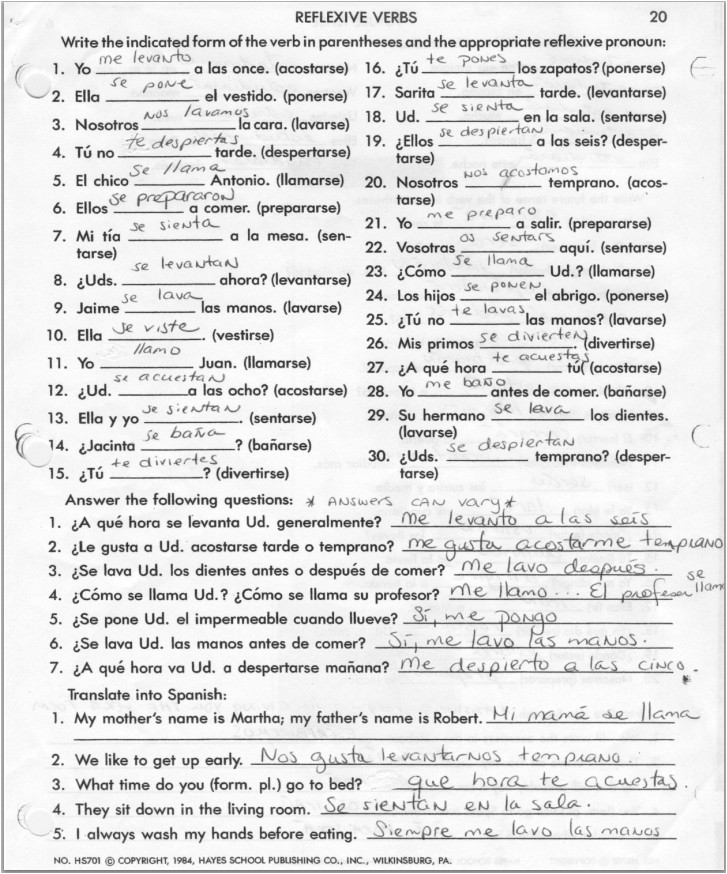 REFLEXIVE VERBS 20
Write the indicated form of the verb in parentheses and the appropriate reflexive pronoun:
1. Yo me levanto a las once. (acostarse)
2. Ella se pone el vestido. (ponerse)
3. Nosotros nos lavamos la cara. (lavarse)
4. Tú no te despiertas tarde. (despertarse)
5. El chico se llama Antonio. (llamarse)
6. Ellos se prepararon a comer. (prepararse)
7. Mi tía se sienta a la mesa. (sen-
tarse)
8. ¿Uds. se levantan ahora? (levantarse)
9. Jaime se lava las manos. (lavarse)
10. Ella se viste. (vestirse)
11. Yo llamo Juan. (llamarse)
12. ¿Ud. se acuestan a las ocho? (acostarse)
13. Ella y yo se sientan. (sentarse)
14. ¿Jacinta se baña? (bañarse)
15. ¿Tú te diviertes? (divertirse)
16. ¿Tú te pones los zapatos? (ponerse)
17. Sarita se levanta tarde. (levantarse)
18. Ud. se sienta en la sala. (sentarse)
19. ¿Ellos se despiertan a las seis? (desper-
tarse)
20. Nosotros nos acostamos temprano. (acos-
tarse)
21. Yo me preparo a salir. (prepararse)
22. Vosotras os sentars aquí. (sentarse)
23. ¿Cómo se llama Ud.? (llamarse)
24. Los hijos se ponen el abrigo. (ponerse)
25. ¿Tú no te lavas las manos? (lavarse)
26. Mis primos se divierten. (divertirse)
27. ¿A qué hora te acuestas tú? (acostarse)
28. Yo me baño antes de comer. (bañarse)
29. Su hermano se lava los dientes.
(lavarse)
30. ¿Uds. se despiertan temprano? (desper-
tarse)
Answer the following questions: * Answers can vary *
1. ¿A qué hora se levanta Ud. generalmente? me levanto a las seis
2. ¿Le gusta a Ud. acostarse tarde o temprano? me gusta acostarme temprano
3. ¿Se lava Ud. los dientes antes o después de comer? me lavo después.
4. ¿Cómo se llama Ud.? ¿Cómo se llama su profesor? me llamo... El profesor se llama
5. ¿Se pone Ud. el impermeable cuando llueve? Sí, me pongo
6. ¿Se lava Ud. las manos antes de comer? Sí, me lavo las manos.
7. ¿A qué hora va Ud. a despertarse mañana? me despierto a las cinco.
*
Translate into Spanish:
1. My mother's name is Martha; my father's name is Robert. Mi mamá se llama
2. We like to get up early. Nos gusta levantarnos temprano.
3. What time do you (form. pl.) go to bed? que hora te acuestas.
4. They sit down in the living room. Se sientan en la sala.
5. I always wash my hands before eating. Siempre me lavo las manos
NO. HS701 © COPYRIGHT, 1984, HAYES SCHOOL PUBLISHING CO., INC., WILKINSBURG, PA.